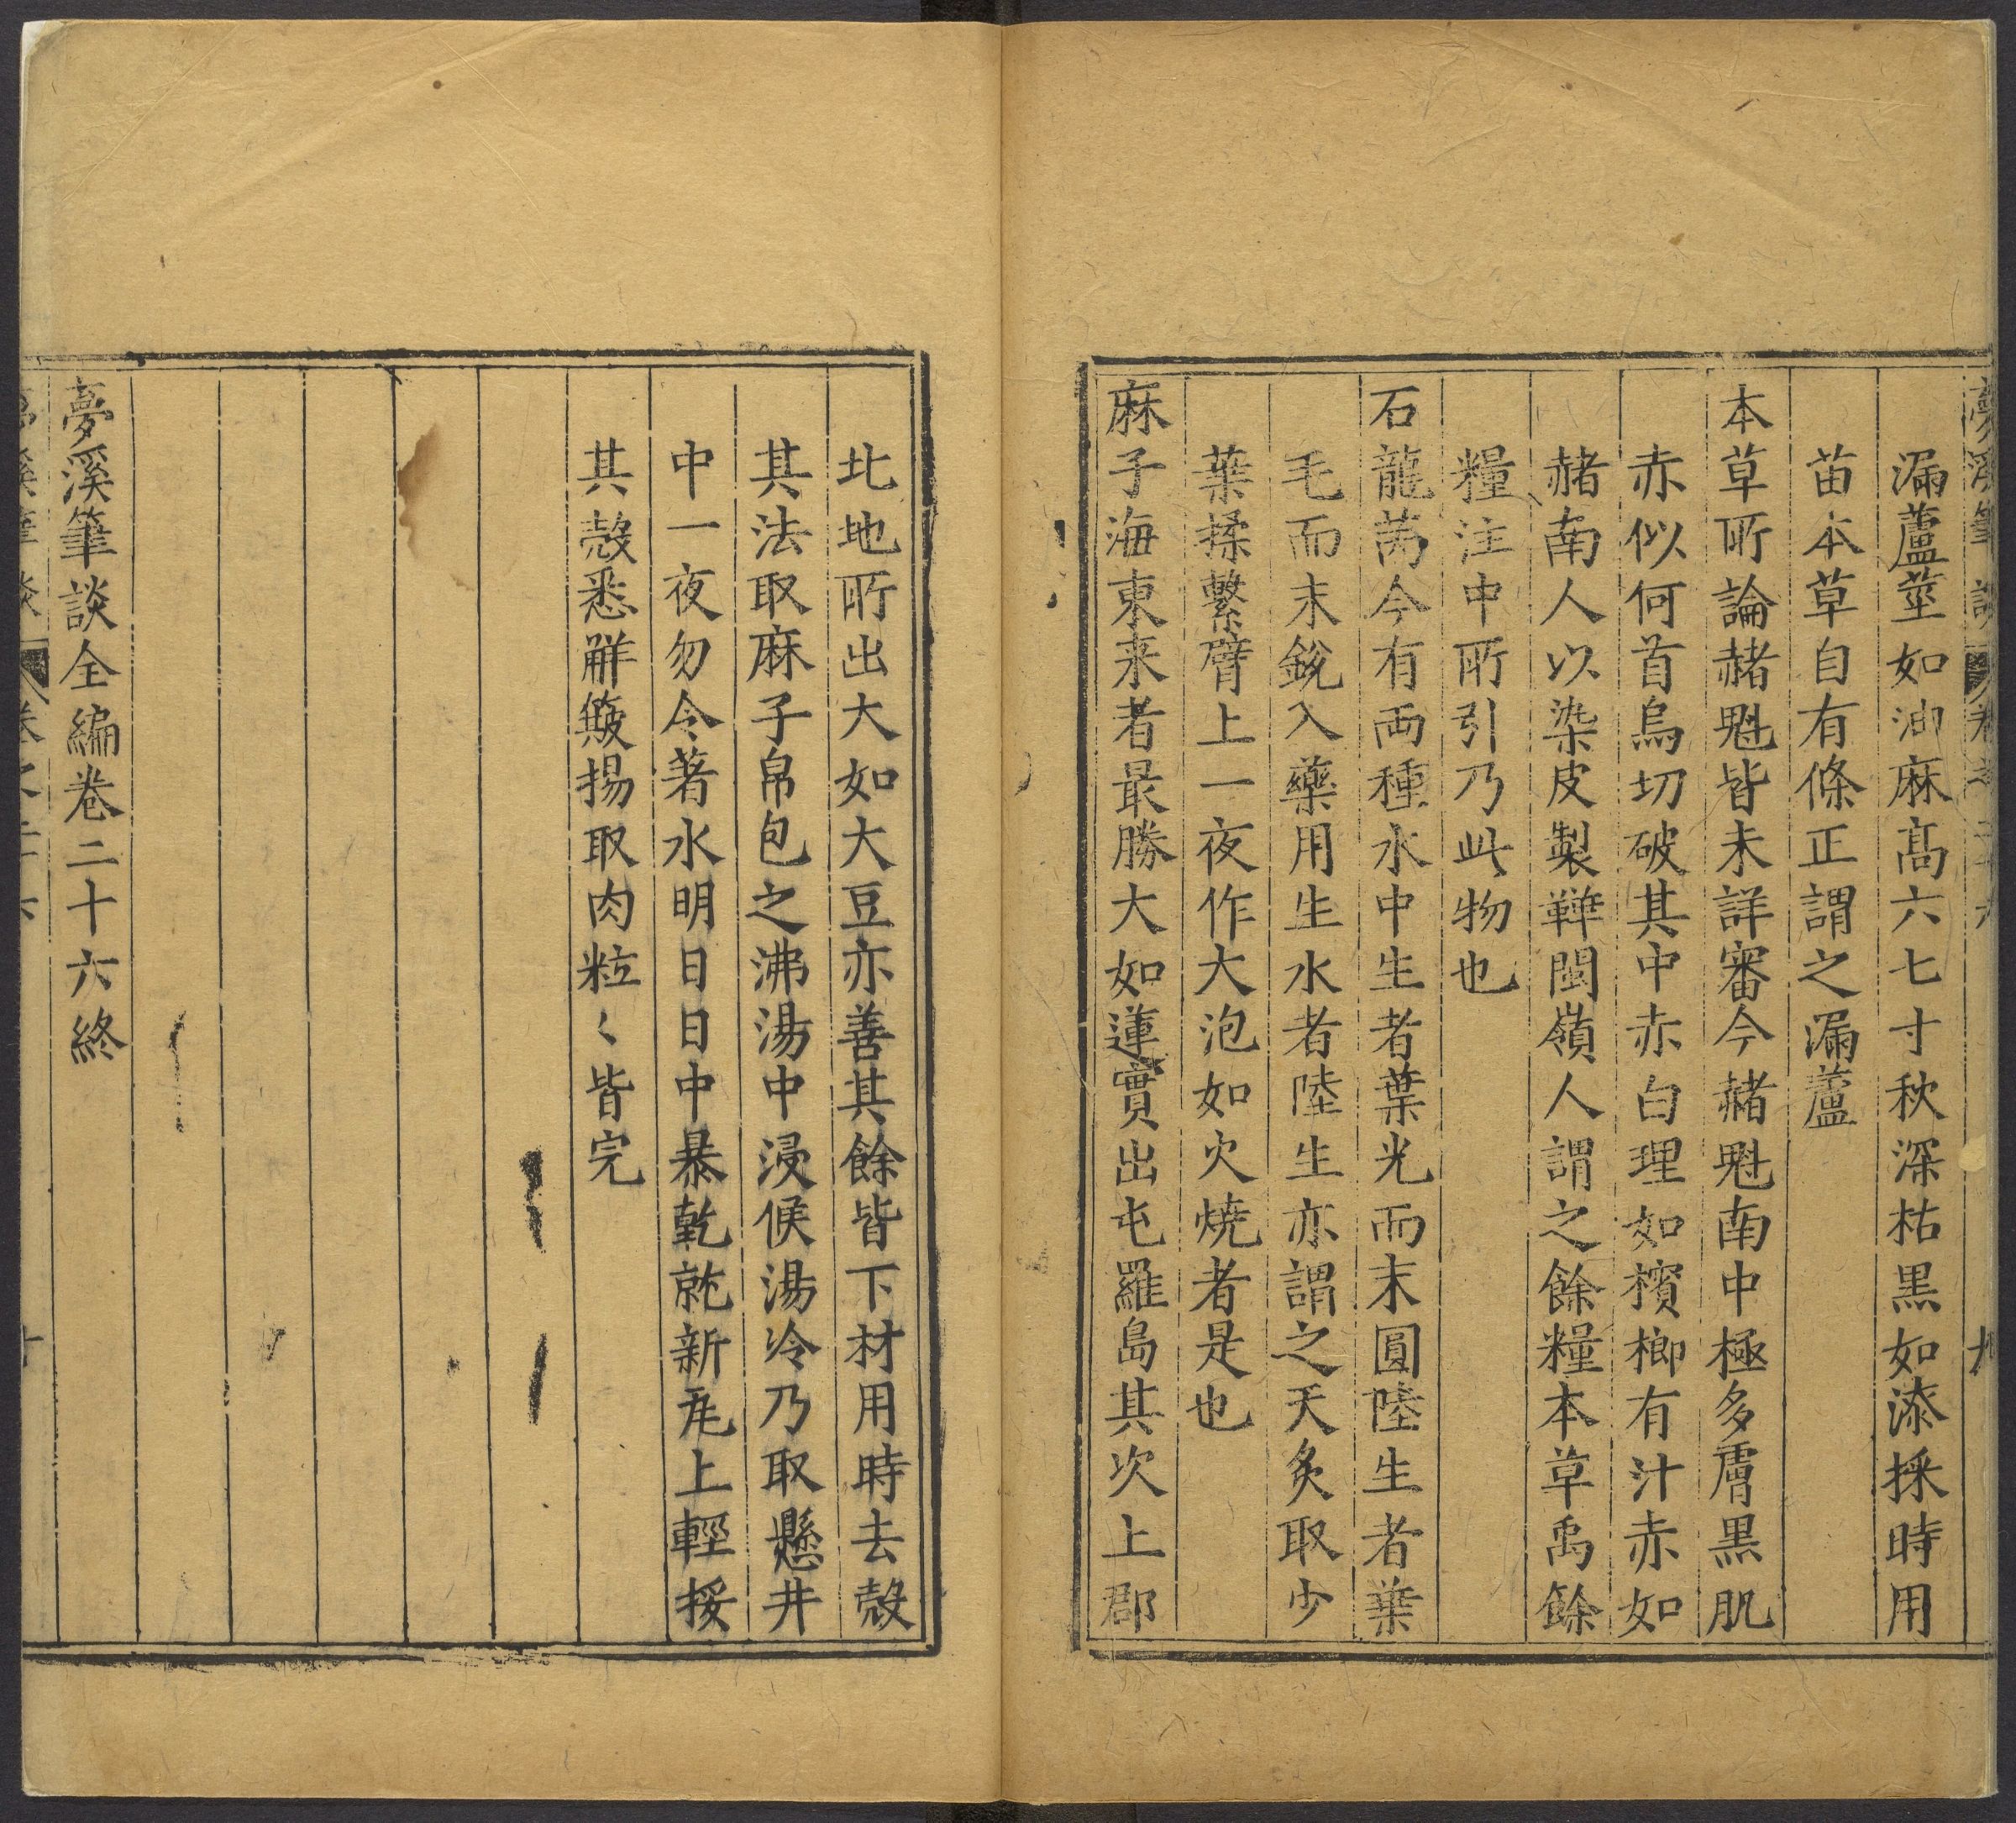 夢溪筆談 卷之二十六 九
漏蘆莖如油麻髙六七寸秋深枯黒如漆採時用
苗本草自有條正謂之漏蘆
本草所論赭魁皆未詳審今赭魁南中極多膚黒肌
赤似何首烏切破其中赤白理如檳榔有汁赤如
赭南人以染皮製鞾閩嶺人謂之餘糧本草禹餘
糧注中所引乃此物也
石龍芮今有两種水中生者葉光而末圓陸生者葉
毛而末銳入藥用生水者陸生亦謂之天炙取少
葉揉繫臂上一夜作大泡如火燒者是也
麻子海東来者最勝大如蓮實出屯羅島其次上郡
北地所出大如大豆亦善其餘皆下材用時去殻
其法取麻子帛包之沸湯中浸候湯冷乃取懸井
中一夜勿令著水明日日中暴乾就新瓦上輕挼
其殻悉觧簸揚取肉粒〻皆完
夢溪筆談全編卷二十六終
夢溪筆談 卷之二十六 十